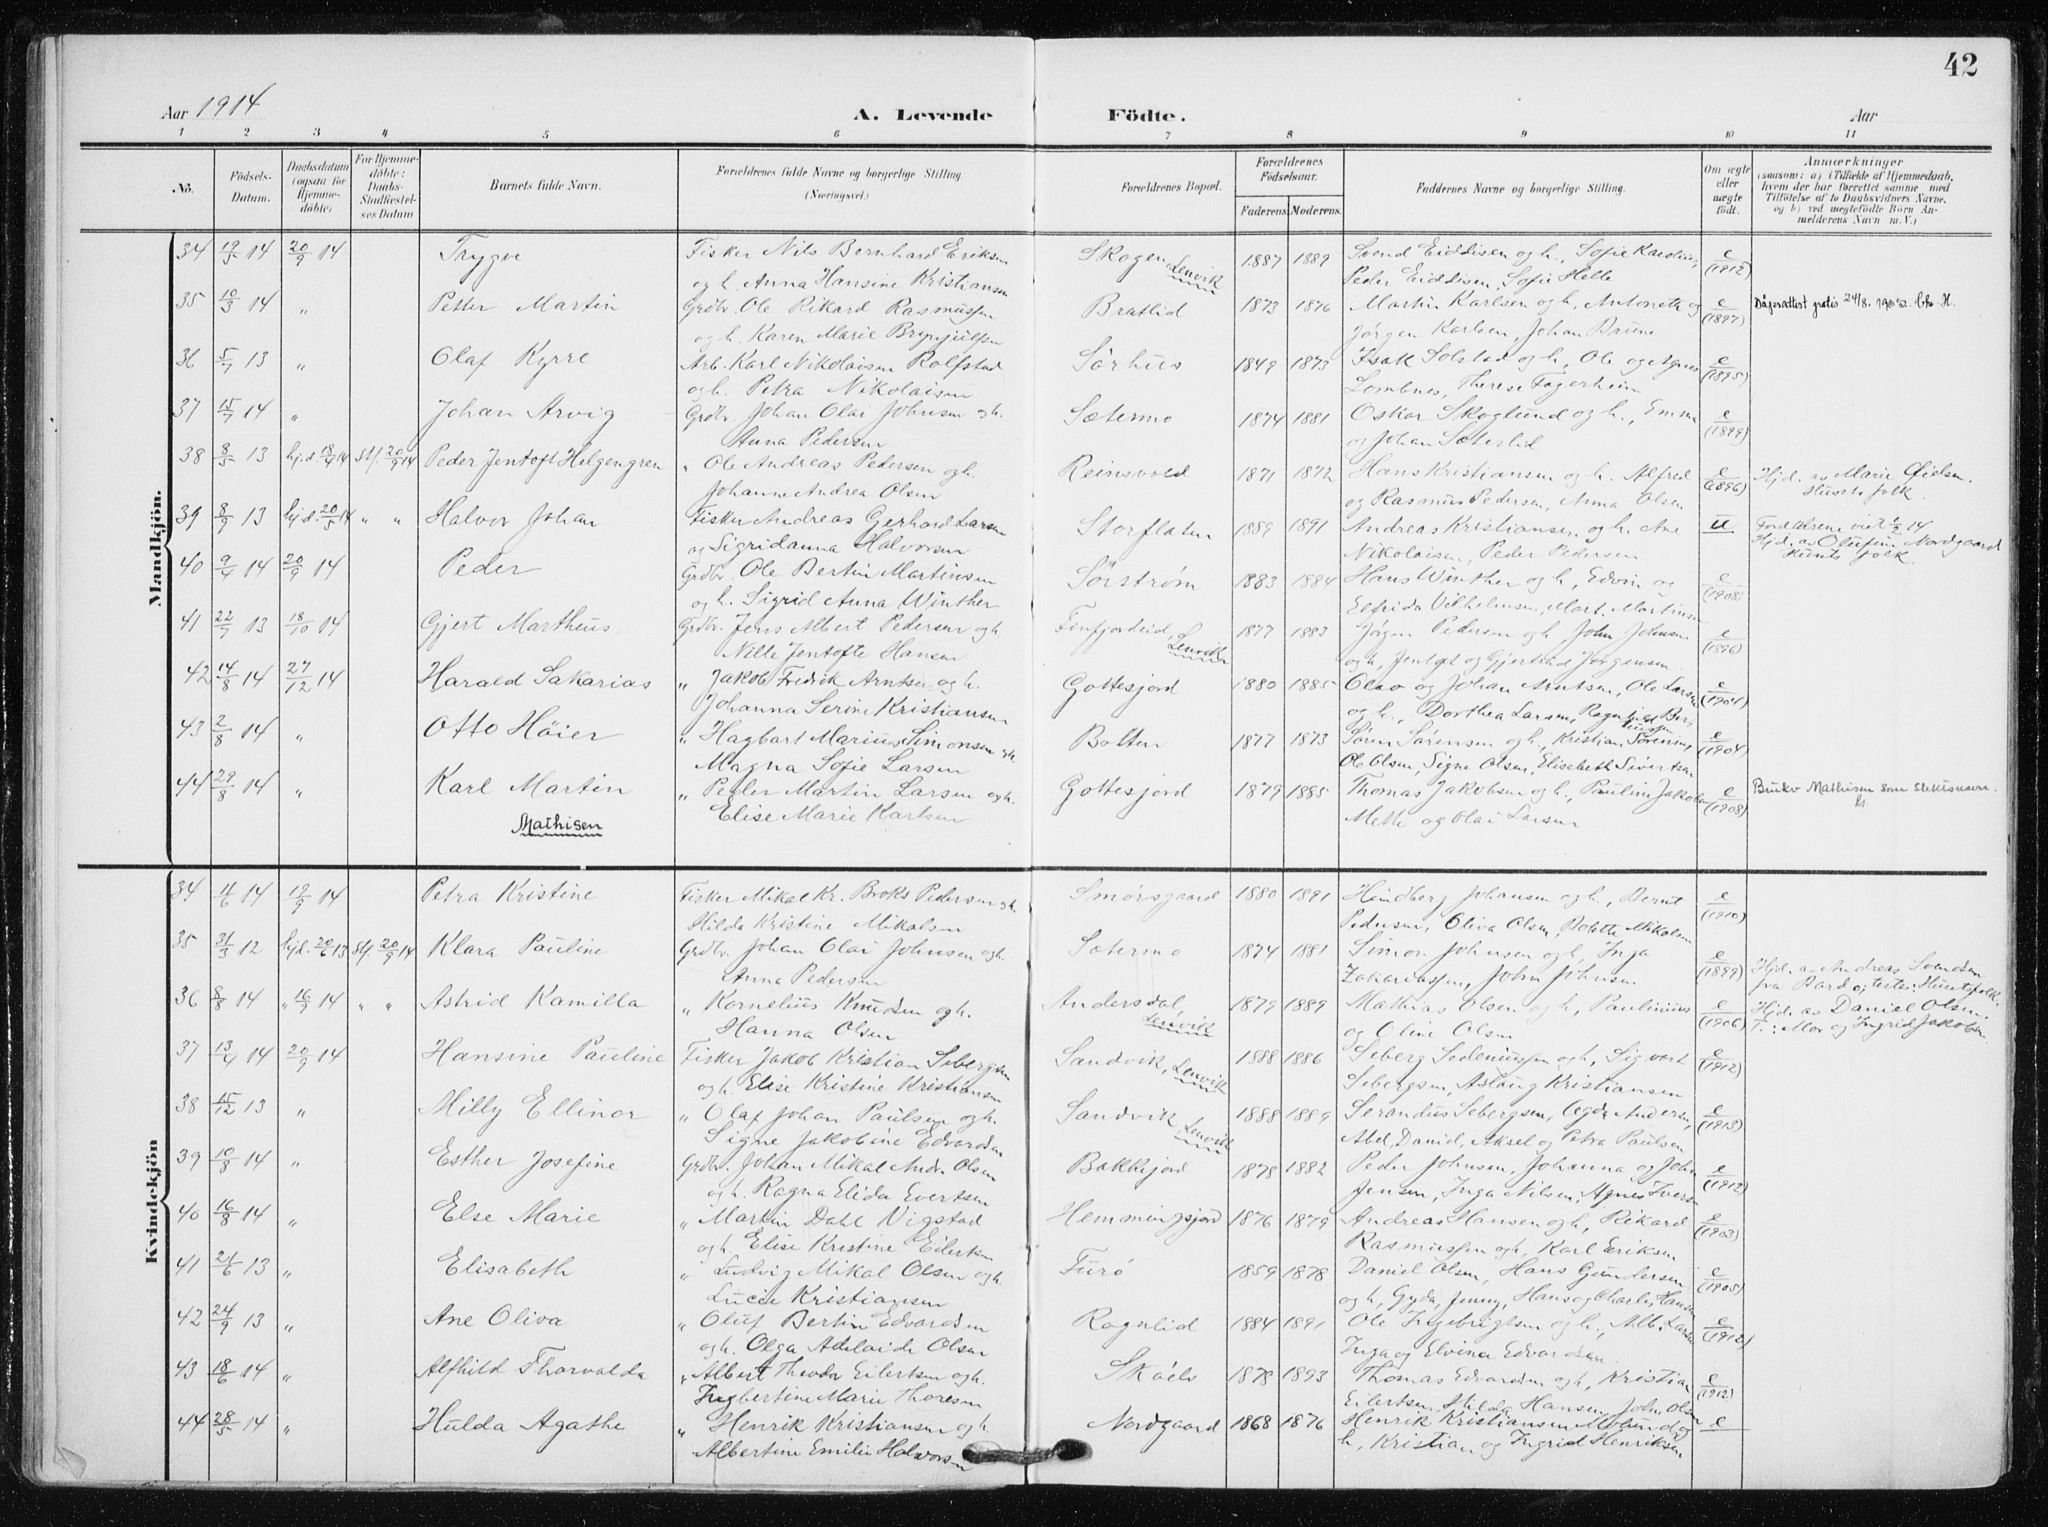 42
Aar 1914 A. Levende Födte. Aar
1 2 3 4 5 6 7 8 9 10 11
No. Födsels-Datum. Daabsdatum (ogsaa for Hjemmedöbte) For Hjemmedöbte: Daabs-Stadfæstelses Datum Barnets fulde Navn. Forældrenes fulde Navne og borgerlige Stilling. (Næringsvei.) Forældrenes Bopæl. Forældrenes Födselsaar. Faderens Moderens. Faddernes Navne og borgerlige Stilling. Om ægte eller uægte födt. Anmærkninger (saasom: a) i Tilfælde af Hjemmedaab, hvem der har forrettet samme med Tilföielse af to Daabsvidners Navne, og b) ved uægtefödte Börn Anmelderens Navn m. V.)
Mandkjön.
34 19/5 14 20/9 14 Trygve Fisker Nils Bernhard Eriksen Skogen, Lenvik 1887 1889 Svend Eiddisen og h., Sofie Karolius, e (1912)
og h. Anna Hansine Kristiansen Peder Eiddisen, Sofie Helle
35 10/3 14 " Petter Martin Grdbr. Ole Rikard Rasmussen Bratlid 1873 1876 Martin Karlsen og h. Antonette og e (1897) Dåpsattest gratis 24/8.
og h. Karen Marie Brynjulfsen Jørgen Karlsen, Johan Bruna
36 5/7 13 " Olaf Kyrre Arb. Karl Nikolaisen Rolfstad Sørhus 1849 1873 Isak Solstad og h., Ole og Agnes e (1895)
og h. Petra Nikolaisen Lombnes, Therese Fagerheim
37 15/7 14 " Johan Arvig Grdbr. Johan Olai Johnsen og h. Sætermo 1874 1881 Oskar Skoglund og h., Emma e (1899)
Anna Pedersen og Johan Sæterlid
38 8/5 13 hj.d. 18/9 14 stf. 20/9 14 Peder Jentoft Helgengren " Ole Andreas Pedersen og h. Reinsvold 1871 1872 Hans Kristiansen og h. Alfred e (1896) Hjd. av Marie
Johanne Andrea Olsen og Rasmus Pedersen, Anna Olsen Husets folk
39 8/9 13 hj.d. 20/5 14 " " Halvor Johan Fisker Andreas Gerhard Larsen Storflaten 1889 1891 Andreas Kristiansen og h. Ane u Foreldrene viet 14
og Sigridanna Halvorsen Nikolaisen, Peder Pedersen Hjd. av Olufine Nordgaard
folk.
40 9/4 14 20/9 14 Peder Grdbr. Ole Bertin Martinsen Sørstrøm 1883 1884 Hans Winther og h., Edvin og e (1908)
og h. Sigrid Anna Winther Elfrida Vilhelmsen, Mart. Martinsen
41 22/7 13 18/10 14 Gjert Martheus Grdbr. Jens Albert Pedersen og h. Finfjordeid, Lenvik 1877 1883 Jørgen Pedersen og h. John Johnsen e (1896)
Nille Jentofte Hansen og h., Jentoft og Jørgensen
42 14/8 14 27/12 14 Harald Sakarias " Jakob Fredrik Arntsen og h. Gottesjord 1880 1885 Olav og Johan Arntsen, Ole Larsen e (1904)
Johanna Serine Kristiansen og h., Dorthea Larsen, Ragnhild Berntsen
43 2/8 14 " Otto Höier " Hagbart Marius Simonsen og h. Bolten 1877 1873 Søren Sørensen og h., Kristian Sørensen, e (1904)
Magna Sofie Larsen Ole Olsen, Signe Olsen, Elisabeth Sivertsen
44 29/8 14 " Karl Martin " Peder Martin Larsen og h. Gottesjord 1879 1885 Thomas Jakobsen og h., Pauline Jakobsen e (1908) Bruker Mathisen som slektsnavn.
Mathisen Elise Marie Karlsen Mette og Olai Larsen
Kvindekjön
34 11/6 14 19/9 14 Petra Kristine Fisker Mikal Kr. Broks Pedersen og h. Smørsgaard 1880 1891 Hindberg Johansen og h., Bernt e (1910)
Hilda Kristine Mikalsen Pedersen, Oliva Olsen, Bolette Mikalsen
35 31/3 12 hjd. 20/6 13 stf. 20/9 14 Klara Pauline Grdbr. Johan Olai Johnsen og h. Sætermo 1874 1881 Simon Johnsen og h., Inga e (1899) Hjd. av Andreas Svendsen
Anna Pedersen Zakariassen, John Johnsen fra Bardo, testes: Husetsfolk
36 8/8 14 " 16/9 14 " " Astrid Kamilla " Kornelius Knudsen og h. Andersdal, Lenvik 1879 1889 Mathias Olsen og h., Paulinius e (1906) Hjd. av Daniel Olsen.
Hanna Olsen og Oline Olsen T.: Mor og Ingrid Jakobsen.
37 13/4 14 20/9 14 Hansine Pauline Fisker Jakob Kristian Sebergsen Sandvik, Lenvik 1888 1886 Seberg Sedeniussen og h., Sigvart e (1912)
og h. Elise Kristine Kristiansen Sebergsen, Aslaug Kristiansen
38 15/12 13 " Milly Ellinor " Olaf Johan Paulsen og h. Sandvik, Lenvik 1888 1889 Serandus Sebergsen, Agda Andersen, e (1913)
Signe Jakobine Edvardsen Abel, Daniel, Aksel og Petra Paulsen
39 10/8 14 " Esther Josefine Grdbr. Johan Mikal Andr. Olsen Bakkejord 1878 1882 Peder Johnsen, Johanna og John e (1912)
og h. Ragna Elida Evertsen Jensen, Inga Nilsen, Agnes Iversen
40 16/8 14 " Else Marie " Martin Dahl Vigstad Hemmingsjord 1876 1879 Andreas Hansen og h., Rikard e (1903)
og h. Elise Kristine Eilertsen Rasmussen og h., Karl Eriksen
41 21/6 13 " Elisabeth " Ludvig Mikal Olsen og h. Furö 1859 1878 Daniel Olsen, Hans Gundersen e (1905)
Lucie Kristiansen og h., Gyda, Jenny, Hans og Charles Hansen
42 24/9 13 " Ane Oliva " Oluf Bertin Edvardsen Rognlid 1884 1891 Ole Ingebrigtsen og h., Alb. Larsen e (1912)
og h. Olga Adelaide Olsen Inga og Elvina Edvardsen
43 18/6 14 " Alfhild Thorvalda " Albert Theodor Eilertsen og h. Skøelv 1878 1893 Thomas Edvardsen og h., Kristian e (1912)
Ingbertine Marie Thoresen Eilertsen, Hilda Hansen, John Olsen
44 28/5 14 " Hulda Agathe " Henrik Kristiansen og h. Nordgaard 1868 1876 Henrik Kristiansen Molund og e
Albertine Emilie Halvorsen h., Kristian og Ingrid Henriksen